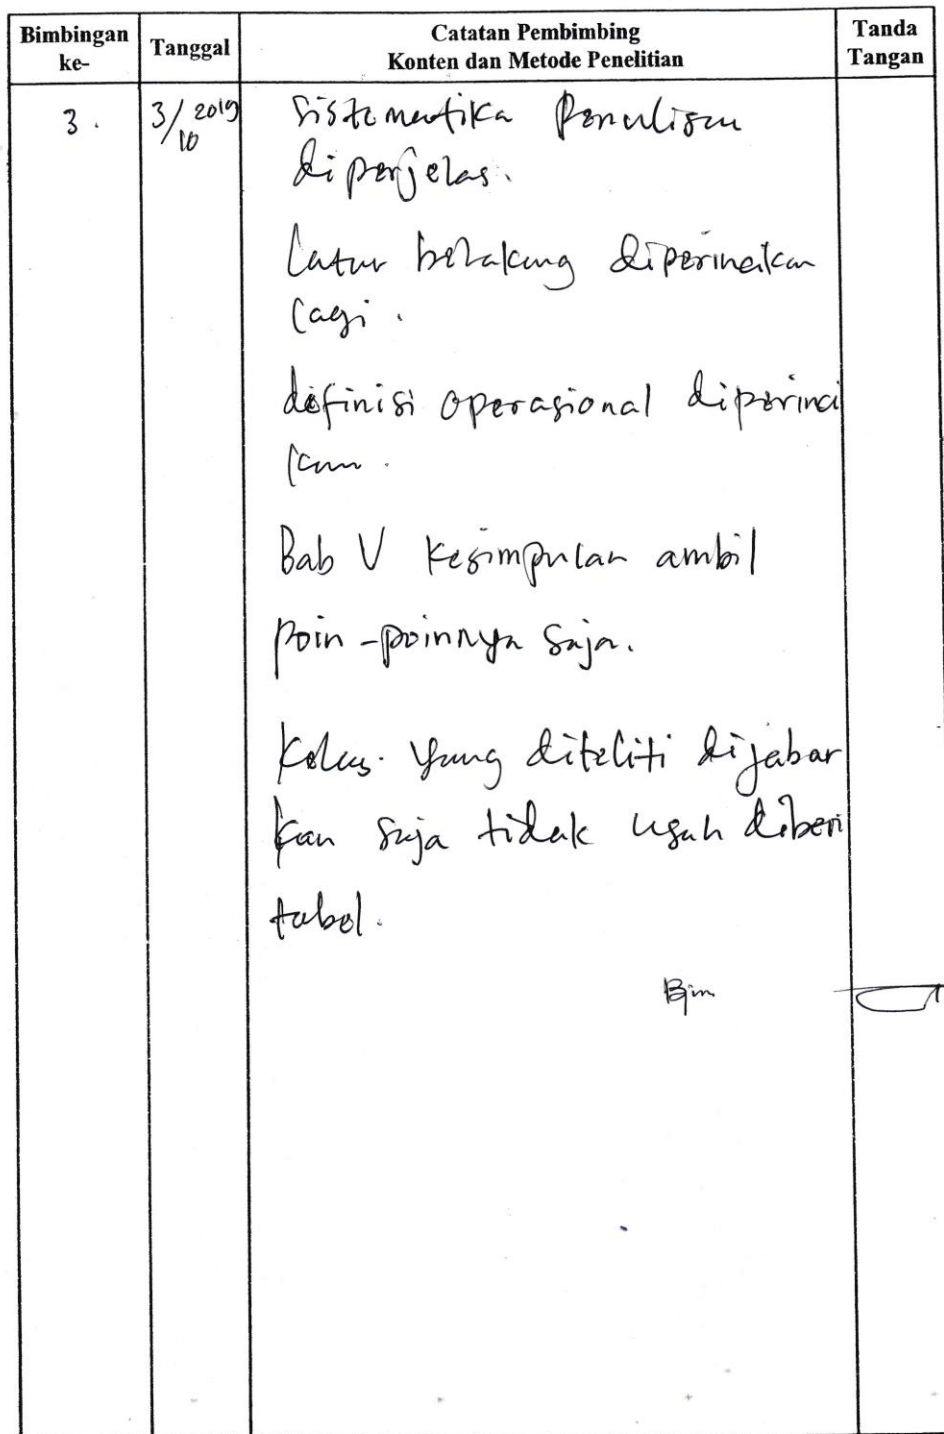 Bimbingan ke- Tanggal Catatan Pembimbing Konten dan Metode Penelitian Tanda Tangan
3. 3/10 2019 Sistematika Penulisan
diperjelas.
Latar belakang diperincikan
lagi.
definisi operasional diperinci
kan.
Bab V Kesimpulan ambil
Poin-poinnya saja.
Kelas yang diteliti dijabar
kan saja tidak usah diberi
tabel.